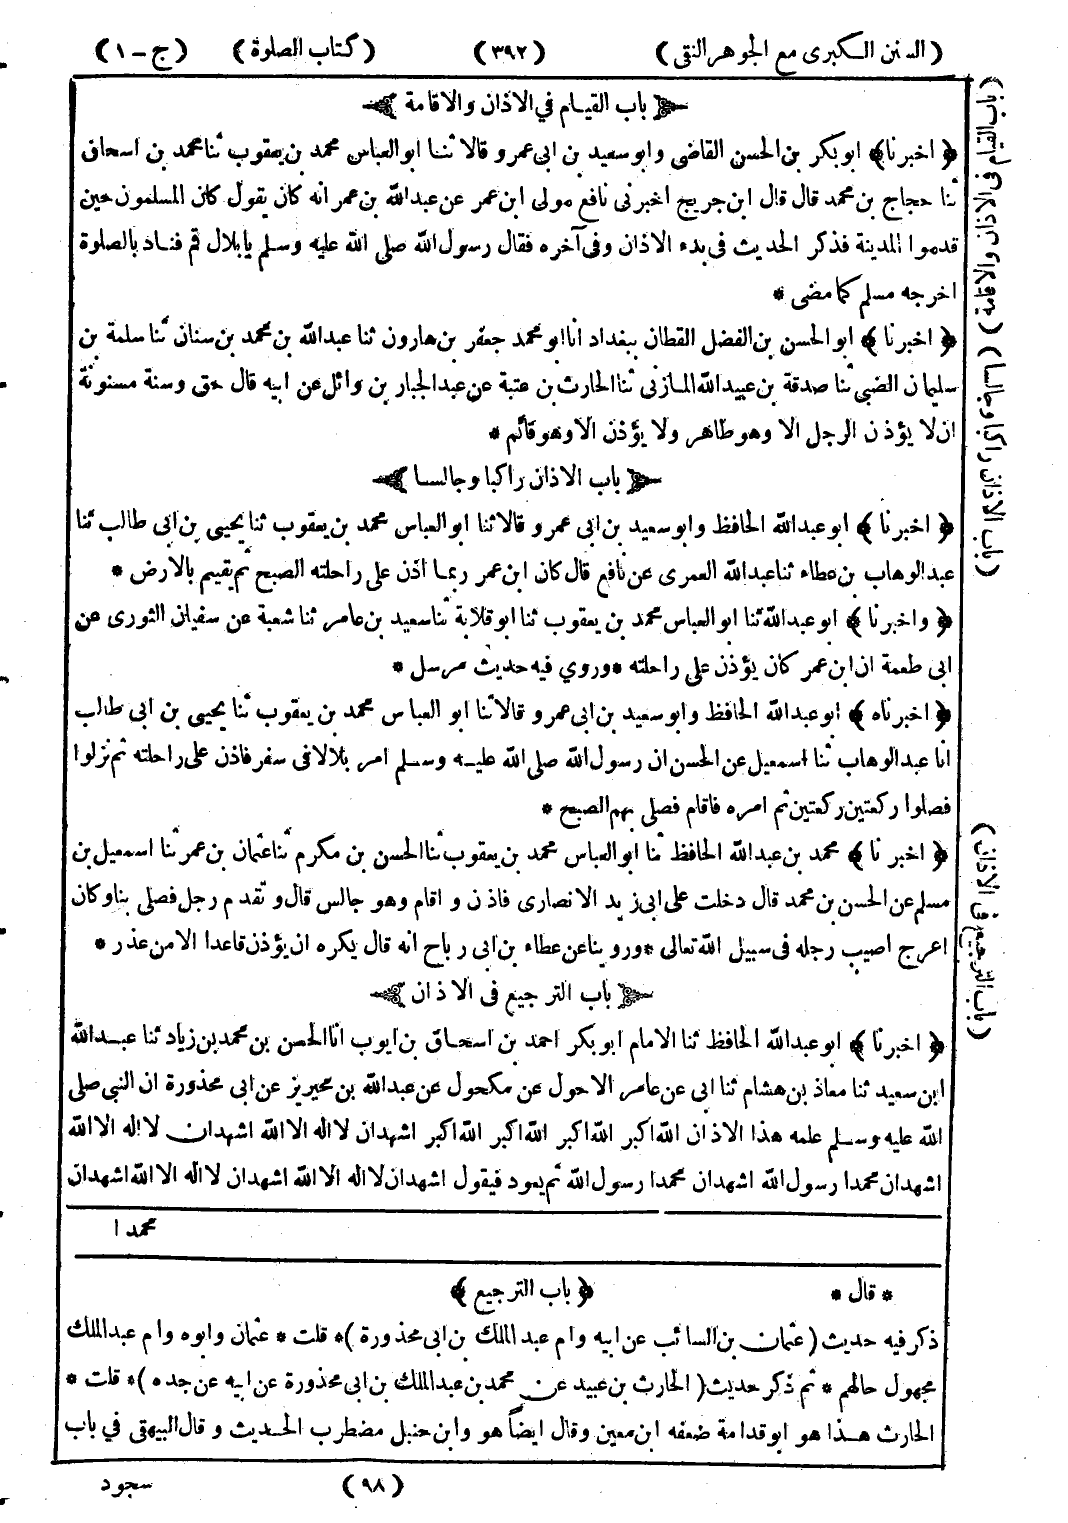 (السنن الكبرى مع الجوهر النقى) (٣٩٢) (كتاب الصلوة) (ج - ١)
باب القيام فى الاذان والاقامة
﴿ اخبرنا﴾ ابوبكر بن الحسن القاضى وابو سعيد بن ابى عمرو قالا ثنا ابو العباس محمد بن يعقوب ثنا محمد بن اسحاق
ثنا حجاج بن محمد قال قال ابن جريج اخبرنى نافع مولى ابن عمر عن عبدالله بن عمر انه كان يقول كان المسلمون حين
قدموا المدينة فذكر الحديث فى بدء الاذان وفى آخره فقال رسول الله صلى الله عليه وسلم يا بلال قم فناد بالصلوة
اخرجه مسلم كما مضى *
﴿ اخبرنا ﴾ ابو الحسن بن الفضل القطان ببغداد انا ابو محمد جعفر بن هارون ثنا عبدالله بن محمد بن سنان ثنا سلمة بن
سليمان الضبى ثنا صدقة بن عبيدالله المازنى ثنا الحارث بن عتبة عن عبدالجبار بن وائل عن ابيه قال حق وسنة مسنونة
ان لا يؤذن الرجل الا وهو طاهر ولا يؤذن الا وهو قائم *
باب الاذان راكبا وجالسا
﴿ اخبرنا ﴾ ابو عبدالله الحافظ وابو سعيد بن ابى عمرو قالا ثنا ابو العباس محمد بن يعقوب ثنا يحيى بن ابى طالب ثنا
عبدالوهاب بن عطاء ثنا عبدالله العمرى عن نافع قال كان ابن عمر ربما اذن على راحلته الصبح ثم يقيم بالارض *
﴿ واخبرنا ﴾ ابو عبدالله ثنا ابو العباس محمد بن يعقوب ثنا ابو قلابة ثنا سعيد بن عامر ثنا شعبة عن سفيان الثورى عن
ابى طعمة ان ابن عمر كان يؤذن على راحلته * وروي فيه حديث مرسل *
﴿ اخبرناه ﴾ ابو عبدالله الحافظ وابو سعيد بن ابى عمرو قالا ثنا ابو العباس محمد بن يعقوب ثنا يحيى بن ابى طالب
انا عبدالوهاب ثنا اسمعيل عن الحسن ان رسول الله صلى الله عليه وسلم امر بلالا فى سفر فاذن على راحلته ثم نزلوا
فصلوا ركعتين ركعتين ثم امره فاقام فصلى بهم الصبح *
﴿ اخبرنا ﴾ محمد بن عبدالله الحافظ ثنا ابو العباس محمد بن يعقوب ثنا الحسن بن مكرم ثنا عثمان بن عمر ثنا اسمعيل بن
مسلم عن الحسن بن محمد قال دخلت على ابى زيد الانصارى فاذن و اقام وهو جالس قال و تقدم رجل فصلى بنا وكان
اعرج اصيب رجله فى سبيل الله تعالى * وروينا عن عطاء بن ابى رباح انه قال يكره ان يؤذن قاعدا الا من عذر *
باب الترجيع فى الاذان
﴿ اخبرنا ﴾ ابو عبدالله الحافظ ثنا الامام ابوبكر احمد بن اسحاق بن ايوب انا الحسن بن محمد بن زياد ثنا عبدالله
ابن سعيد ثنا معاذ بن هشام ثنا ابى عن عامر الاحول عن مكحول عن عبدالله بن محيريز عن ابى محذورة ان النبى صلى
الله عليه وسلم علمه هذا الاذان الله اكبر الله اكبر الله اكبر الله اكبر اشهد ان لا اله الا الله اشهد ان لا اله الا الله
اشهد ان محمدا رسول الله اشهد ان محمدا رسول الله ثم يعود فيقول اشهد ان لا اله الا الله اشهد ان لا اله الا الله اشهد ان
محمدا
* قال * ﴿ باب الترجيع ﴾
ذكر فيه حديث (عثمان بن السائب عن ابيه وام عبدالملك بن ابى محذورة)* قلت * عثمان وابوه وام عبدالملك
مجهول حالهم * ثم ذكر حديث (الحارث بن عبيد عن محمد بن عبدالملك بن ابى محذورة عن ابيه عن جده)* قلت *
الحارث هذا هو ابو قدامة ضعفه ابن معين وقال ايضاً هو وابن حنبل مضطرب الحديث و قال البيهقى في باب
(٩٨) سجود
(باب القيام فى الاذان والاقامة) (باب الاذان راكبا وجالسا)
(باب الترجيع فى الاذان)